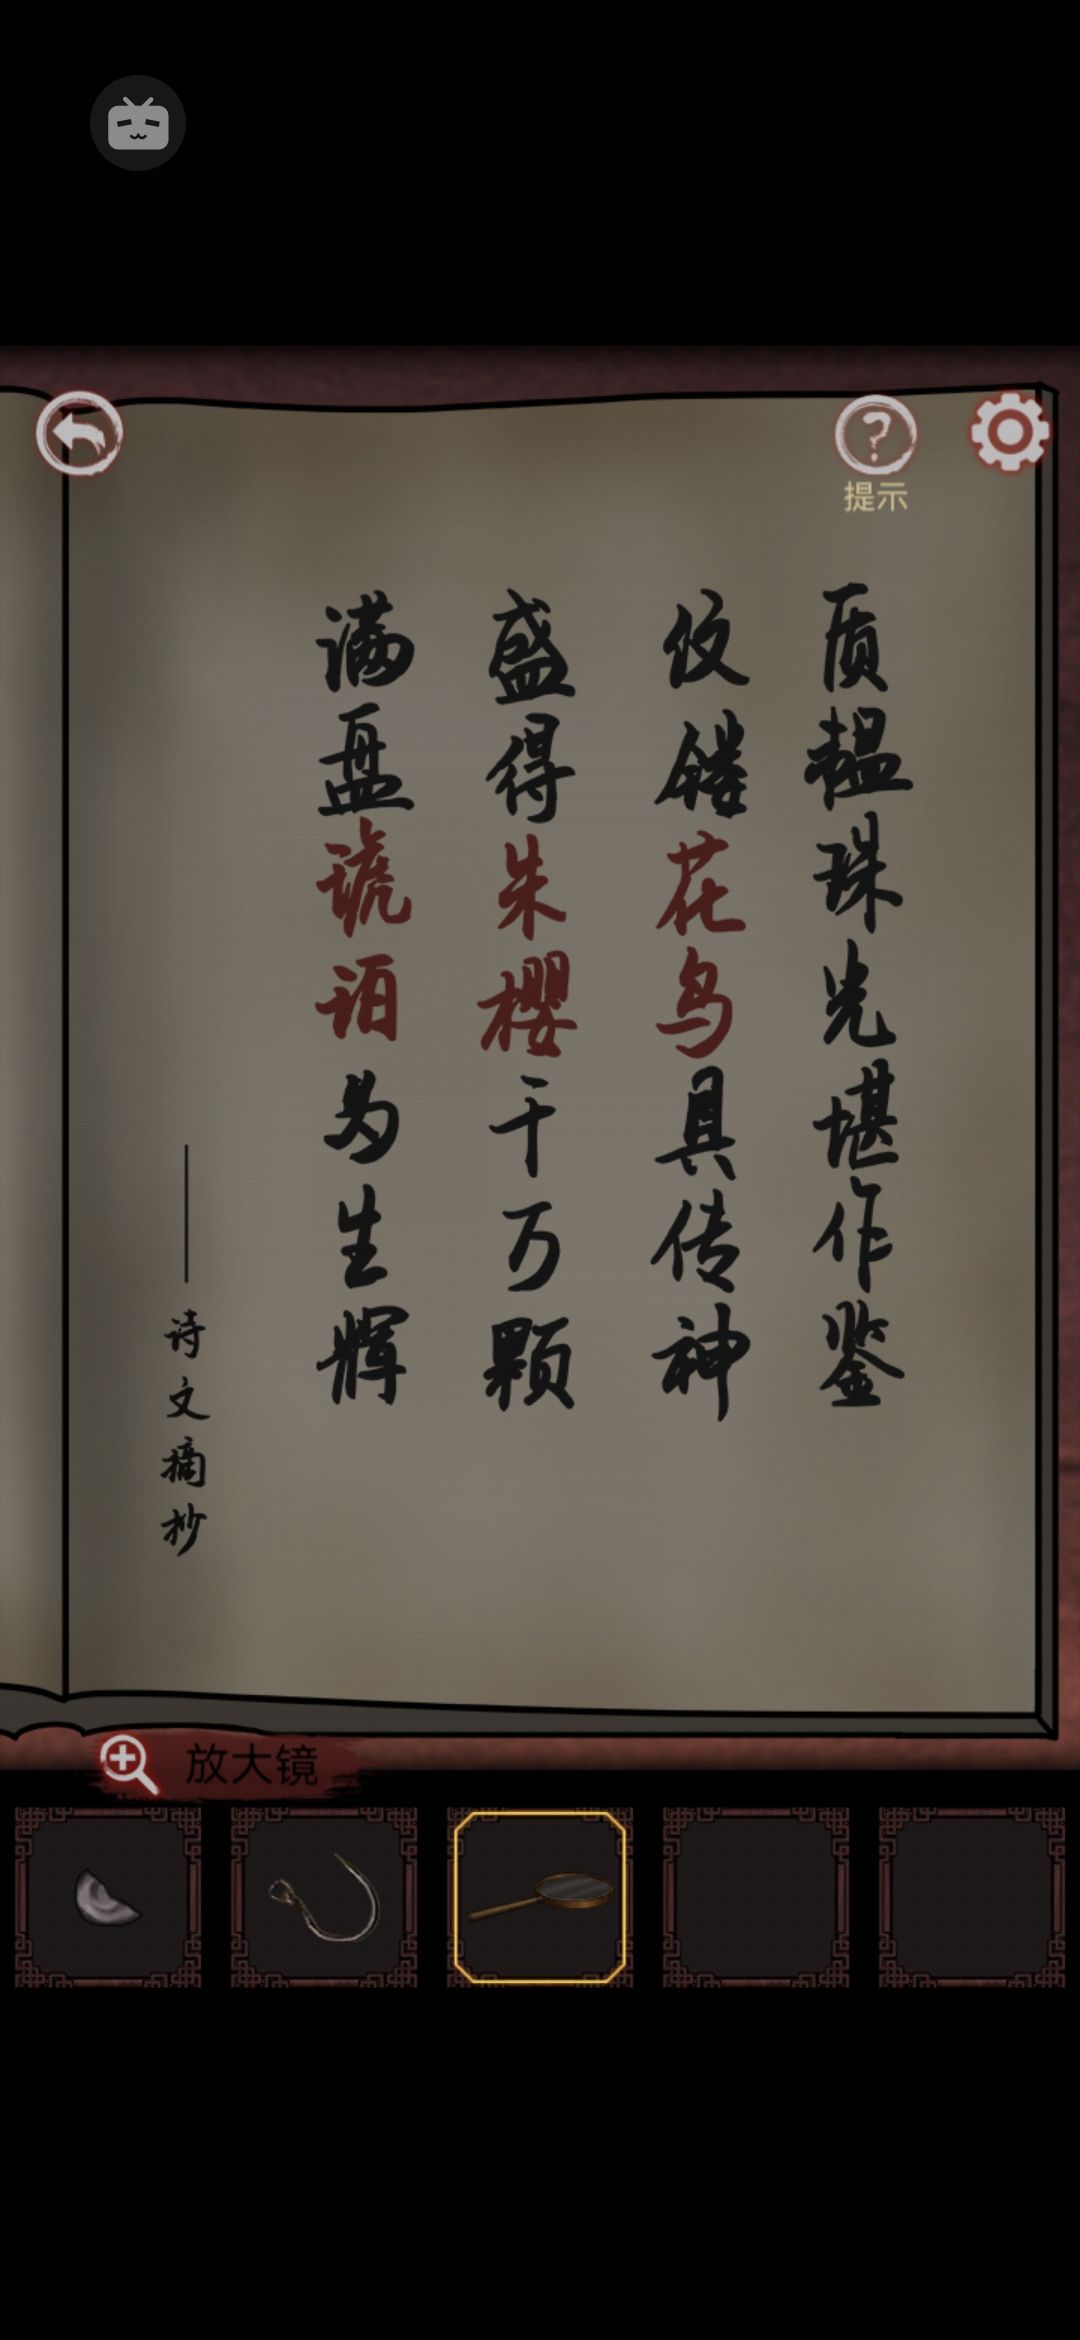 提示
质韫珠光堪作鉴
纹镂花鸟具传神
盛得朱樱千万颗
满盘琥珀为生辉
——诗文摘抄
放大镜